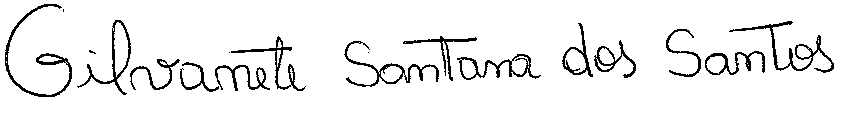 Gilvanete Santana dos Santos